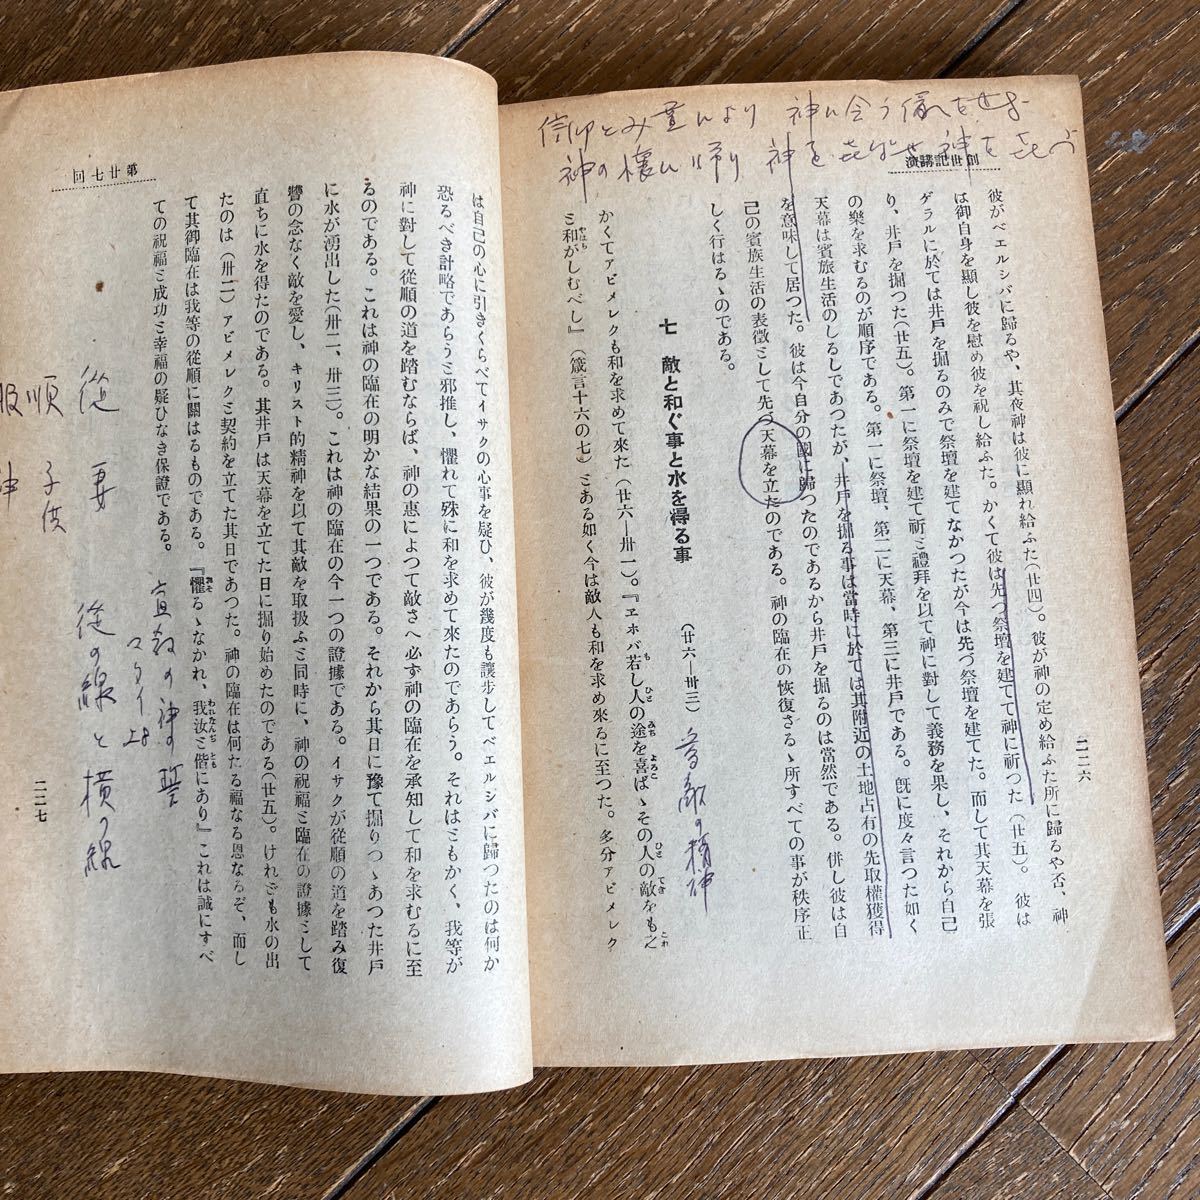 創世記講演
二二六
彼がベエルシバに歸るや、其夜神は彼に顯れ給ふた(廿四)。彼が神の定め給ふた所に歸るや否、神
は御自身を顯し彼を慰め彼を祝し給ふた。かくて彼は先づ祭壇を建てて神に祈つた(廿五)。彼は
ゲラルに於ては井戸を掘るのみで祭壇を建てなかつたが今は先づ祭壇を建てた。而して其天幕を張
り、井戸を掘つた(廿五)。第一に祭壇を建て祈ミ禮拜を以て神に對して義務を果し、それから自己
の樂を求むるのが順序である。第一に祭壇、第二に天幕、第三に井戸である。旣に度々言つた如く
天幕は賓旅生活のしるしであつたが、井戸を掘る事は當時に於ては其附近の土地占有の先取權獲得
を意味して居つた。彼は今自分の國に歸つたのであるから井戸を掘るのは當然である。併し彼は自
己の賓族生活の表徴ミして先づ天幕を立たのである。神の臨在の恢復さるゝ所すべての事が秩序正
しく行はるゝのである。
七 敵と和ぐ事と水を得る事 (廿六—卅三)
かくてアビメレクも和を求めて來た(廿六—卅一)。『ヱホバ若し人の途を喜ばゝその人の敵をも之
ミ和がしむべし』(箴言十六の七)ミある如く今は敵人も和を求め來るに至つた。多分アビメレク
第廿七回
二二七
は自己の心に引きくらべてイサクの心事を疑ひ、彼が幾度も讓步してベエルシバに歸つたのは何か
恐るべき計略であらうミ邪推し、懼れて殊に和を求めて來たのであらう。それはミもかく、我等が
神に對して從順の道を踏むならば、神の惠によつて敵さへ必ず神の臨在を承知して和を求むるに至
るのである。これは神の臨在の明かな結果の一つである。それから其日に豫て掘りつゝあつた井戸
に水が湧出した(卅二、卅三)。これは神の臨在の今一つの證據である。イサクが從順の道を踏み復
讐の念なく敵を愛し、キリスト的精神を以て其敵を取扱ふミ同時に、神の祝福ミ臨在の證據ミして
直ちに水を得たのである。其井戸は天幕を立てた日に掘り始めたのである(廿五)。けれども水の出
たのは(卅二)アビメレクミ契約を立てた其日であつた。神の臨在は何たる福なる恩なるぞ、而し
て其御臨在は我等の從順に關はるものである。『懼るゝなかれ、我汝ミ偕にあり』これは誠にすべ
ての祝福ミ成功ミ幸福の疑ひなき保證である。
從 妻
順 子供
服 神
從の線と横の線